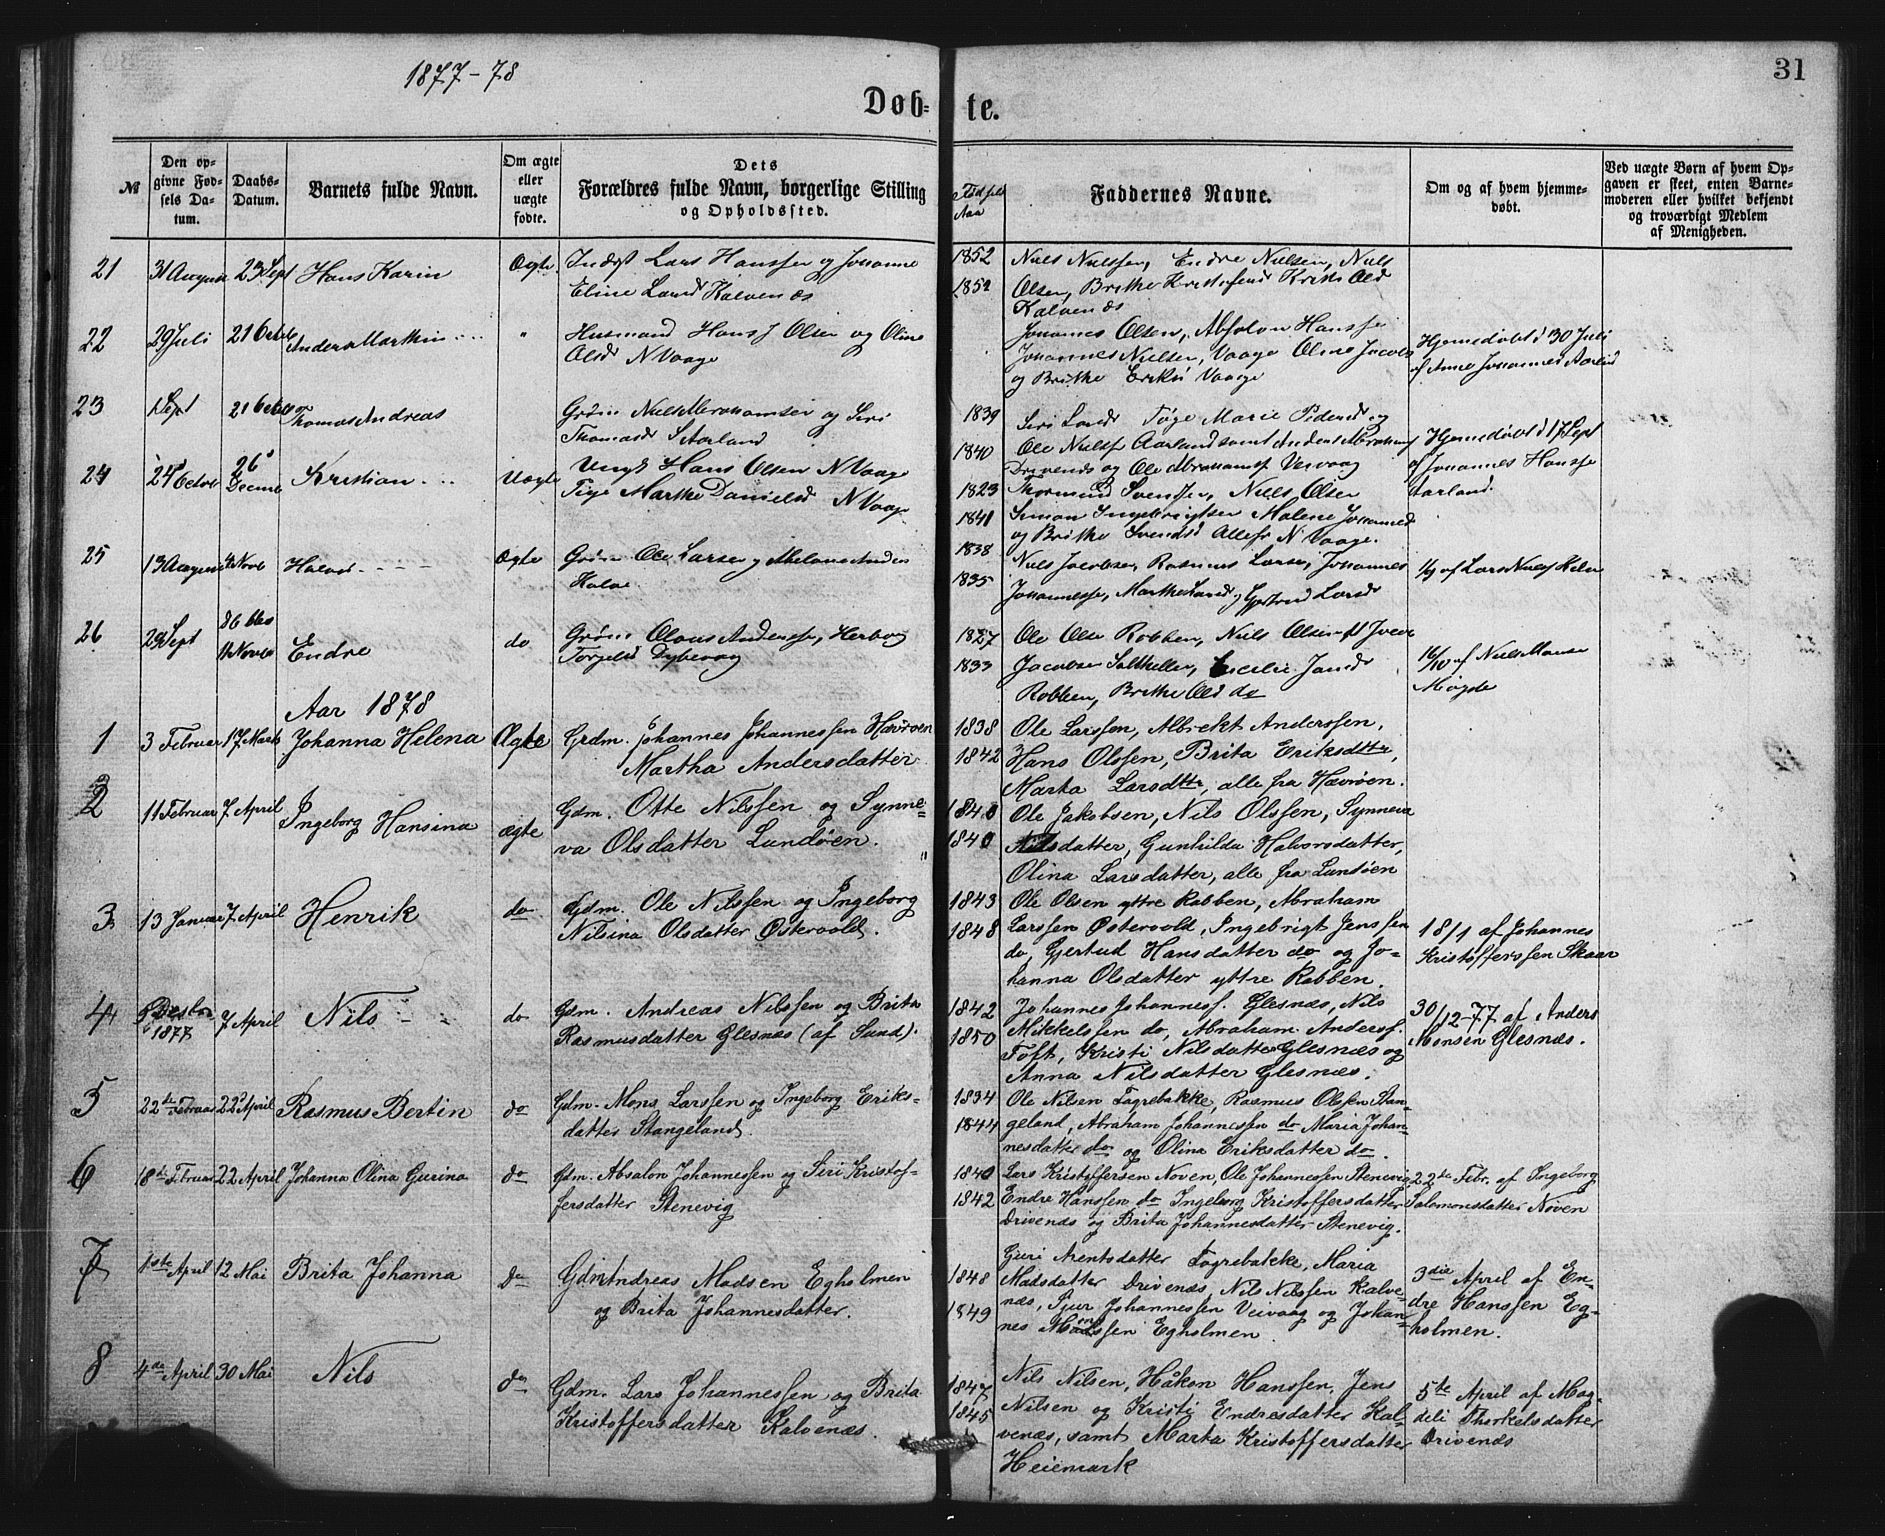 1877-78
31
Døb-
te.
№
Den op-
givne Fød-
sels Da-
tum.
Daabs-
Datum.
Barnets fulde Navn.
Om ægte
eller
uægte
fødte.
Dets
Forældres fulde Navn, borgerlige Stilling
og Opholdssted.
Faddernes Navne.
Om og af hvem hjemme-
døbt.
Ved uægte Børn af hvem Op-
gaven er skeet, enten Barne-
moderen eller hvilket bekjendt
og troværdigt Medlem
af Menigheden.
21
23 Sept
Hans Karin
Ægte
Lars Hanssen og Johanne
Eline Larsd Kalvenæs
1852
1852
Niels Nielssen, Endre Nielsen, Niels
Olsen, Brithe Kristofersd Olsd
Kalvenæs
22
29 Juli
21 Octob
Anders Marthin
"
Husmand Hans J Olsen og Oline
Olsd N Vaage
Johannes Olsen, Absolon Hansse
Johannes Nielsen, Vaage Oline Jacobs
og Brithe Vaage
Hjemedøbt d 30 Juli
af Anne Johannesd Aarland
23
Sept
21 Octob
Thomas Andreas
Niels Abrahamsen og Siri
Thomasd S Aarland
1839
1840
Siri Larsd Marie Pedersd og
Ole Nielss Aarland samt Anders Abraham
Drivenæs og Ole Abrahams Veivaag
Hjemedøbt d 17 Sept
af Johannes Hansse
Aarland
24
24 Octob
26
Decemb
Kristian
Uægte
Ungk Hans Olsen N Vaage
Pige Marthe Danielsd N Vaage
1823
1841
Thormund Svenssen, Niels Olsen
Simon Ingebrigtsen Malene Johannesd
og Brithe Svendsd Alle fr N Vaage.
25
13 August
Novb
Halvor
Ægte
Ole Larsen og
1838
1835
Niels Jacobsen, Rasmus Larsen, Johannes
Johannesse, Marthe Larsd, Gjertrud Larsd
af Lars Niels
26
29 Sept
11 Novb
Endre
do
Olaus Andersse, Herborg
Torgelsd Dybevaag
1827
1833
Ole Olse Robben, Niels Olsen
Jacobsen Solthellen, Cecelie Jansd
Robben, Brithe Olsd do
16/10 af Niels Monse
Møgde
Aar 1878
1
3 Februar
17 Marts
Johanna Helena
Ægte
Grdm. Johannes Johannessen Havrøen
Martha Andersdatter
1838
1842
Ole Larssen, Albrekt Anderssen,
Hans Olssen, Brita Eriksdttr,
Marta Larsdttr, alle fra Hævrøen.
2
11 Februar
7 April
Ingeborg Hansina
ægte
Gdm. Otte Nilssen og Synne-
va Olsdatter Lundøen.
1840
1840
Ole Jakobsen, Nils Olssen, Synneva
Nilsdatter, Gunhilda Halvorsdatter,
Olina Larsdatter, alle fra Lundøen
3
13 Januar
7 April
Henrik
do
Gdm. Ole Nilssen og Ingeborg
Nilsina Olsdatter Østervold.
1843
1848
Ole Olsen yttre Rabben, Abraham
Larssen Østervold, Ingebrigt Jenssen
do, Gjertud Hansdatter do og Jo-
hanna Olsdatter yttre Robben.
18/1 af Johannes
Kristofferssen Skaar
4
Desbr
1877
7 April
Nils
do
Gdm. Andreas Nilssen og Brita
Rasmusdatter Glesnæs (af Sund).
1842
1850
Johannes Johanness. Glesnæs, Nils
Mikkelssen do, Abraham Anderss.
Toft, Kristi Nilsdatter Glesnæs og
Anna Nilsdatter Glesnæs.
30/12-77 af Anders
Monsen Glesnæs.
5
22de Februar
22 April
Rasmus Bertin
do
Gdm. Mons Larssen og Ingeborg Eriks-
datter Stangeland.
1834
1844
Ole Nilsen Fagrebakke, Rasmus Olsen Stan-
geland, Abraham Johannessen do Maria Johan-
nesdatter do og Olina Eriksdatter do.
6
18de Februar
22 April
Johanna Olina Gurina
do
Gdm. Absalon Johannessen og Siri Kristof-
fersdatter Stenevig
1840
1842
Lars Kristoffersen Noven, Ole Johannessen Stenevig
Endre Hanssen do Ingeborg Kristoffersdatter
Drivenæs og Brita Johannesdatter Stenevig.
22de Febr. af Ingeborg
Salomonsdatter Noven
7
1ste April
12 Mai
Brita Johanna
do
Gdm Andreas Madsen Egholmen
og Brita Johannesdatter.
1848
1849
Guri Arentsdatter Fagrebakke, Maria
Madsdatter Drivenæs, Nils Nilssen Kalve-
næs, Sjur Johannessen Veivaag og Johan-
nes Monssen Egholmen.
3die April af En-
dre Hanssen Eg-
holmen.
8
4de April
30 Mai
Nils
do
Gdm. Lars Johannessen og Brita
Kristoffersdatter Kalvenæs.
1847
1845
Nils Nilsen, Håkon Hanssen, Jens
Nilsen og Kristi Endresdatter Kal-
venæs, samt Marta Kristoffersdatter
Heiemark
5te April af Mag-
deli Thorkelsdatter
Drivenæs